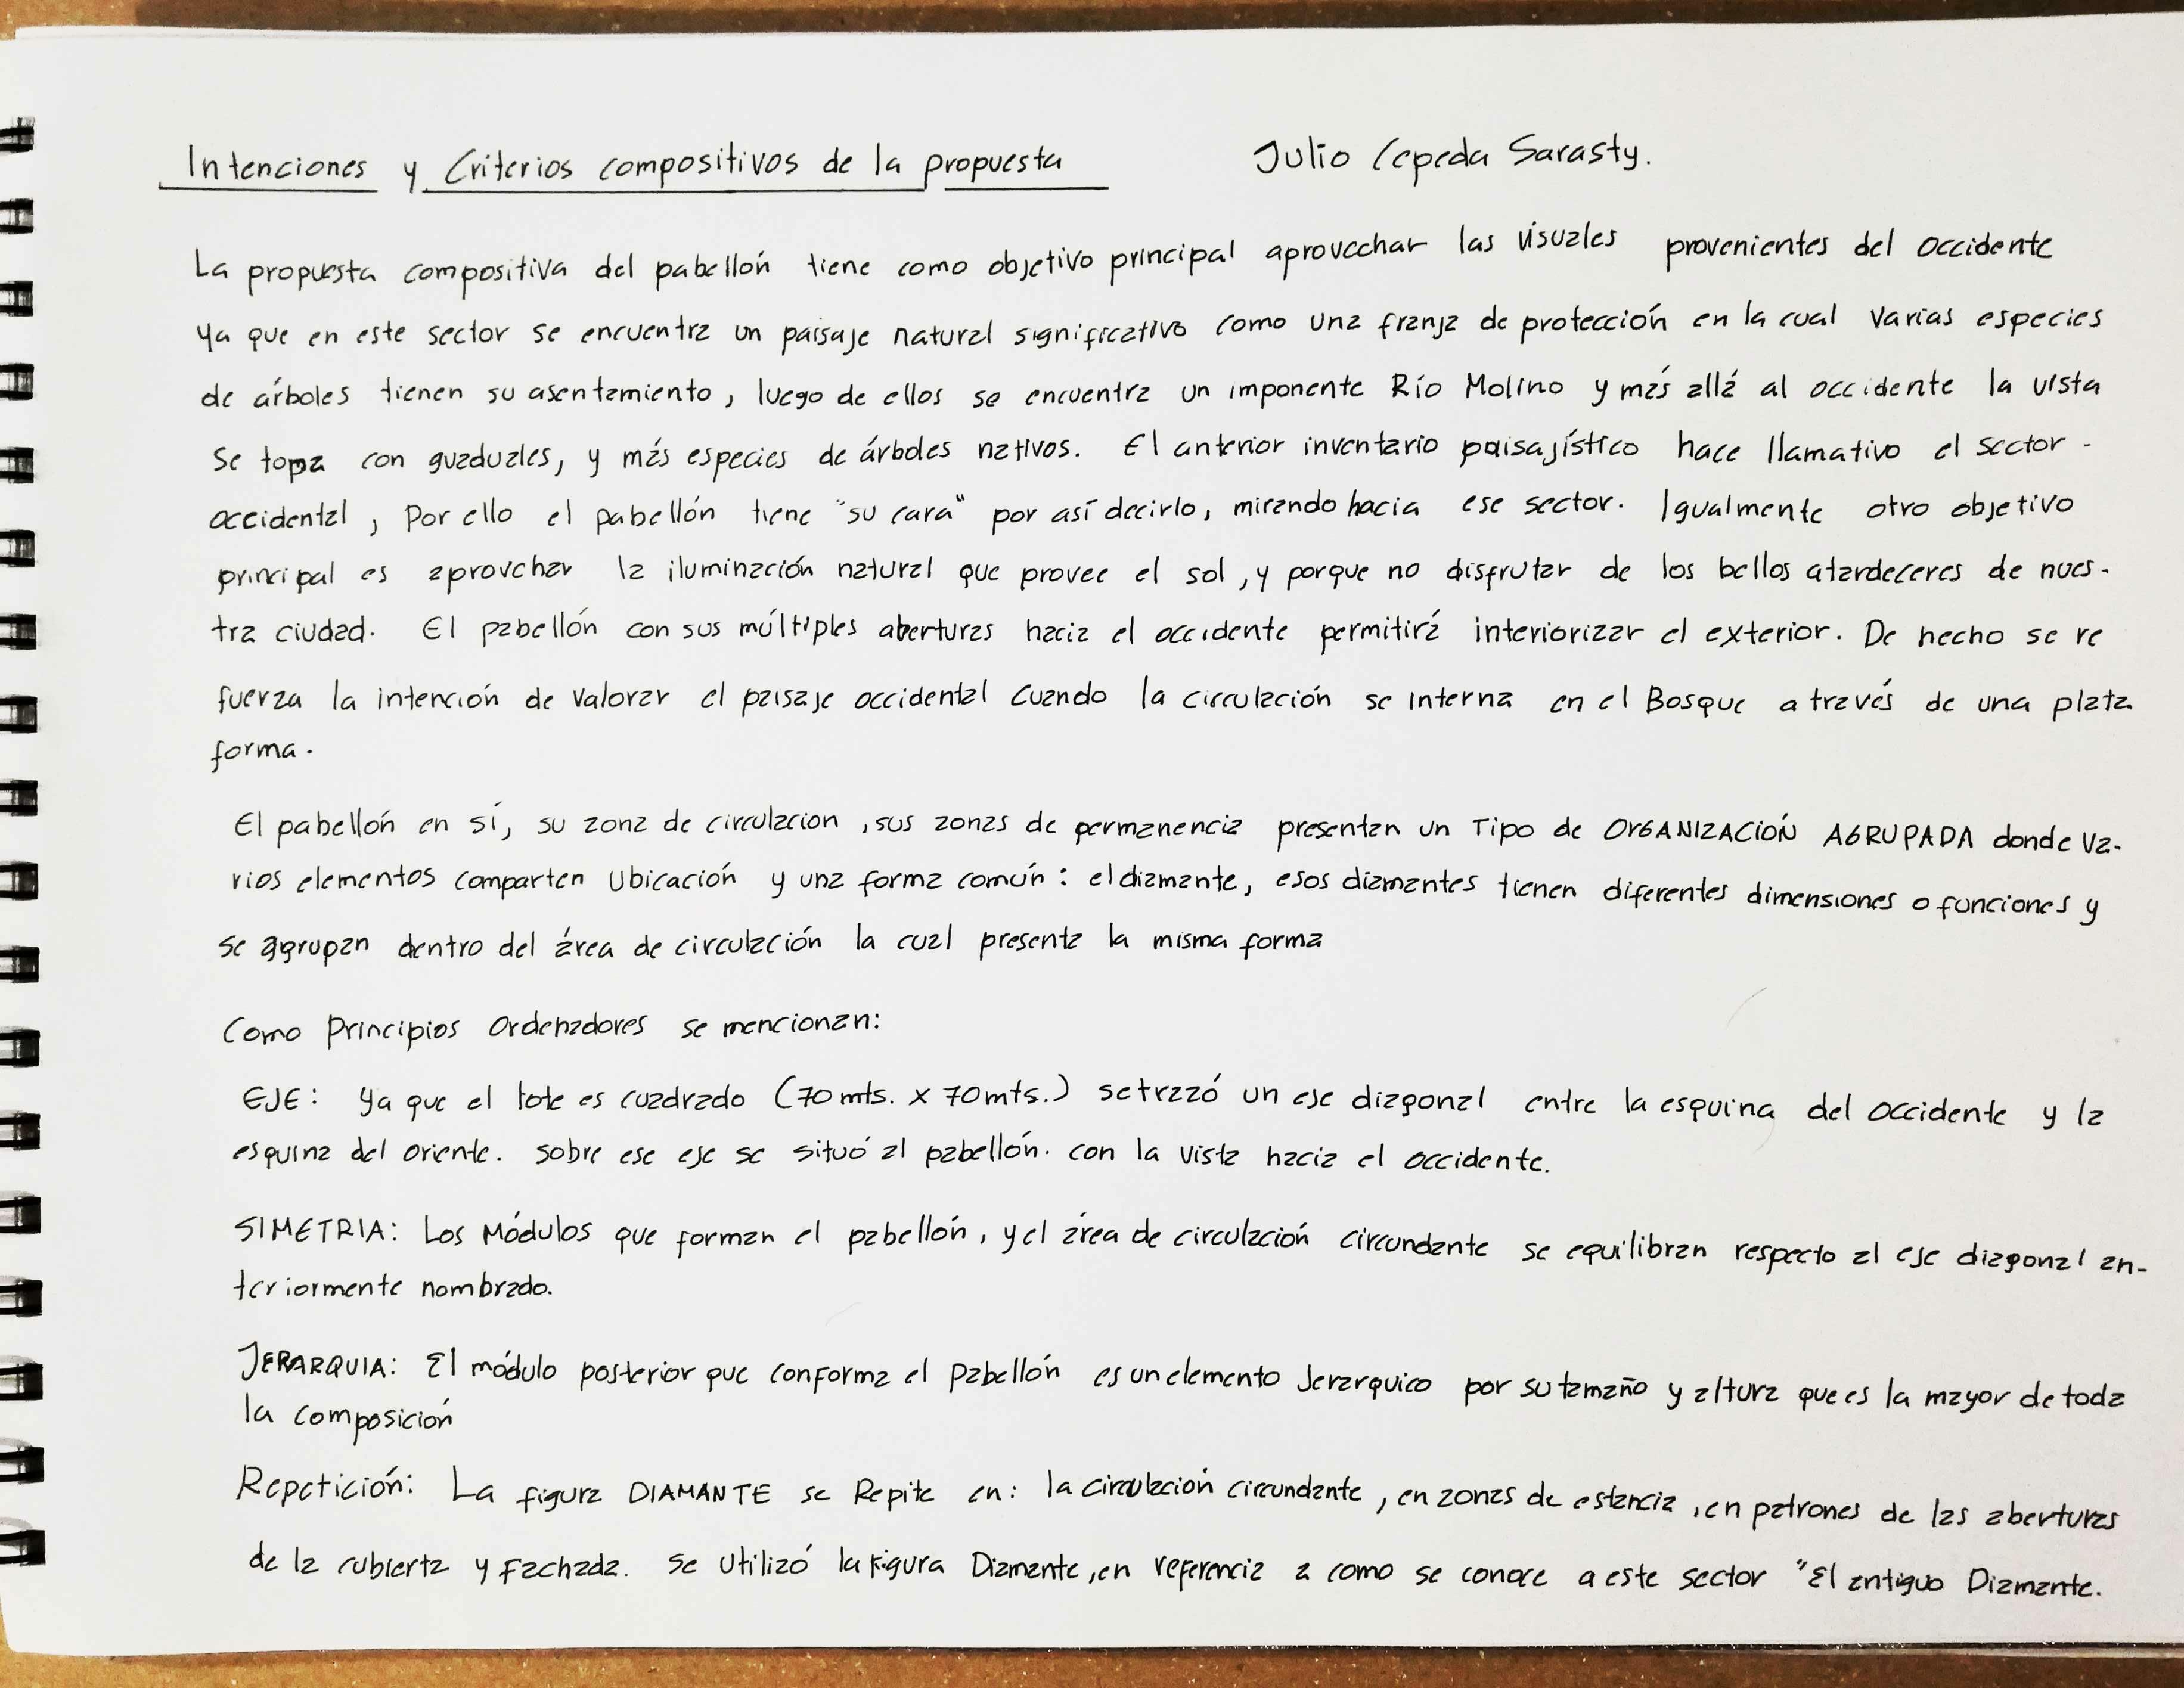 Intenciones y Criterios compositivos de la propuesta
Julio Cepeda Sarasty.
La propuesta compositiva del pabellón tiene como objetivo principal aprovechar las visuales provenientes del occidente
ya que en este sector se encuentra un paisaje natural significativo como una franja de protección en la cual varias especies
de árboles tienen su asentamiento, luego de ellos se encuentra un imponente Río Molino y más allá al occidente la vista
se topa con guaduales, y más especies de árboles nativos. El anterior inventario paisajístico hace llamativo el sector -
occidental, Por ello el pabellón tiene "su cara" por así decirlo, mirando hacia ese sector. Igualmente otro objetivo
principal es aprovchar la iluminación natural que provee el sol, y porque no disfrutar de los bellos atardeceres de nues-
tra ciudad. El pabellón con sus múltiples aberturas hacia el occidente permitirá interiorizar el exterior. De hecho se re
fuerza la intención de valorar el paisaje occidental cuando la circulación se interna en el Bosque a través de una plata
forma.
El pabellón en sí, su zona de circulacion, sus zonas de permanencia presentan un Tipo de ORGANIZACIÓN AGRUPADA donde va-
rios elementos comparten ubicación y una forma común: el diamante, esos diamantes tienen diferentes dimensiones o funciones y
se agrupan dentro del área de circulación la cual presenta la misma forma
Como Principios Ordenadores se mencionan:
EJE: Ya que el lote es cuadrado (70 mts. x 70 mts.) se trazó un eje diagonal entre la esquina del occidente y la
esquina del oriente. Sobre ese eje se situó al pabellón. con la vista hacia el occidente.
SIMETRIA: Los Módulos que forman el pabellón, y el área de circulación circundante se equilibran respecto al eje diagonal an-
teriormente nombrado.
JERARQUIA: El módulo posterior que conforma el Pabellón es un elemento Jerarquico por su tamaño y altura que es la mayor de toda
la composición
Repetición: La figura DIAMANTE se Repite en: la circulación circundante, en zonas de estancia, en patrones de las aberturas
de la cubierta y fachada. Se utilizó la figura Diamante, en referencia a como se conoce a este sector "El antiguo Diamante.